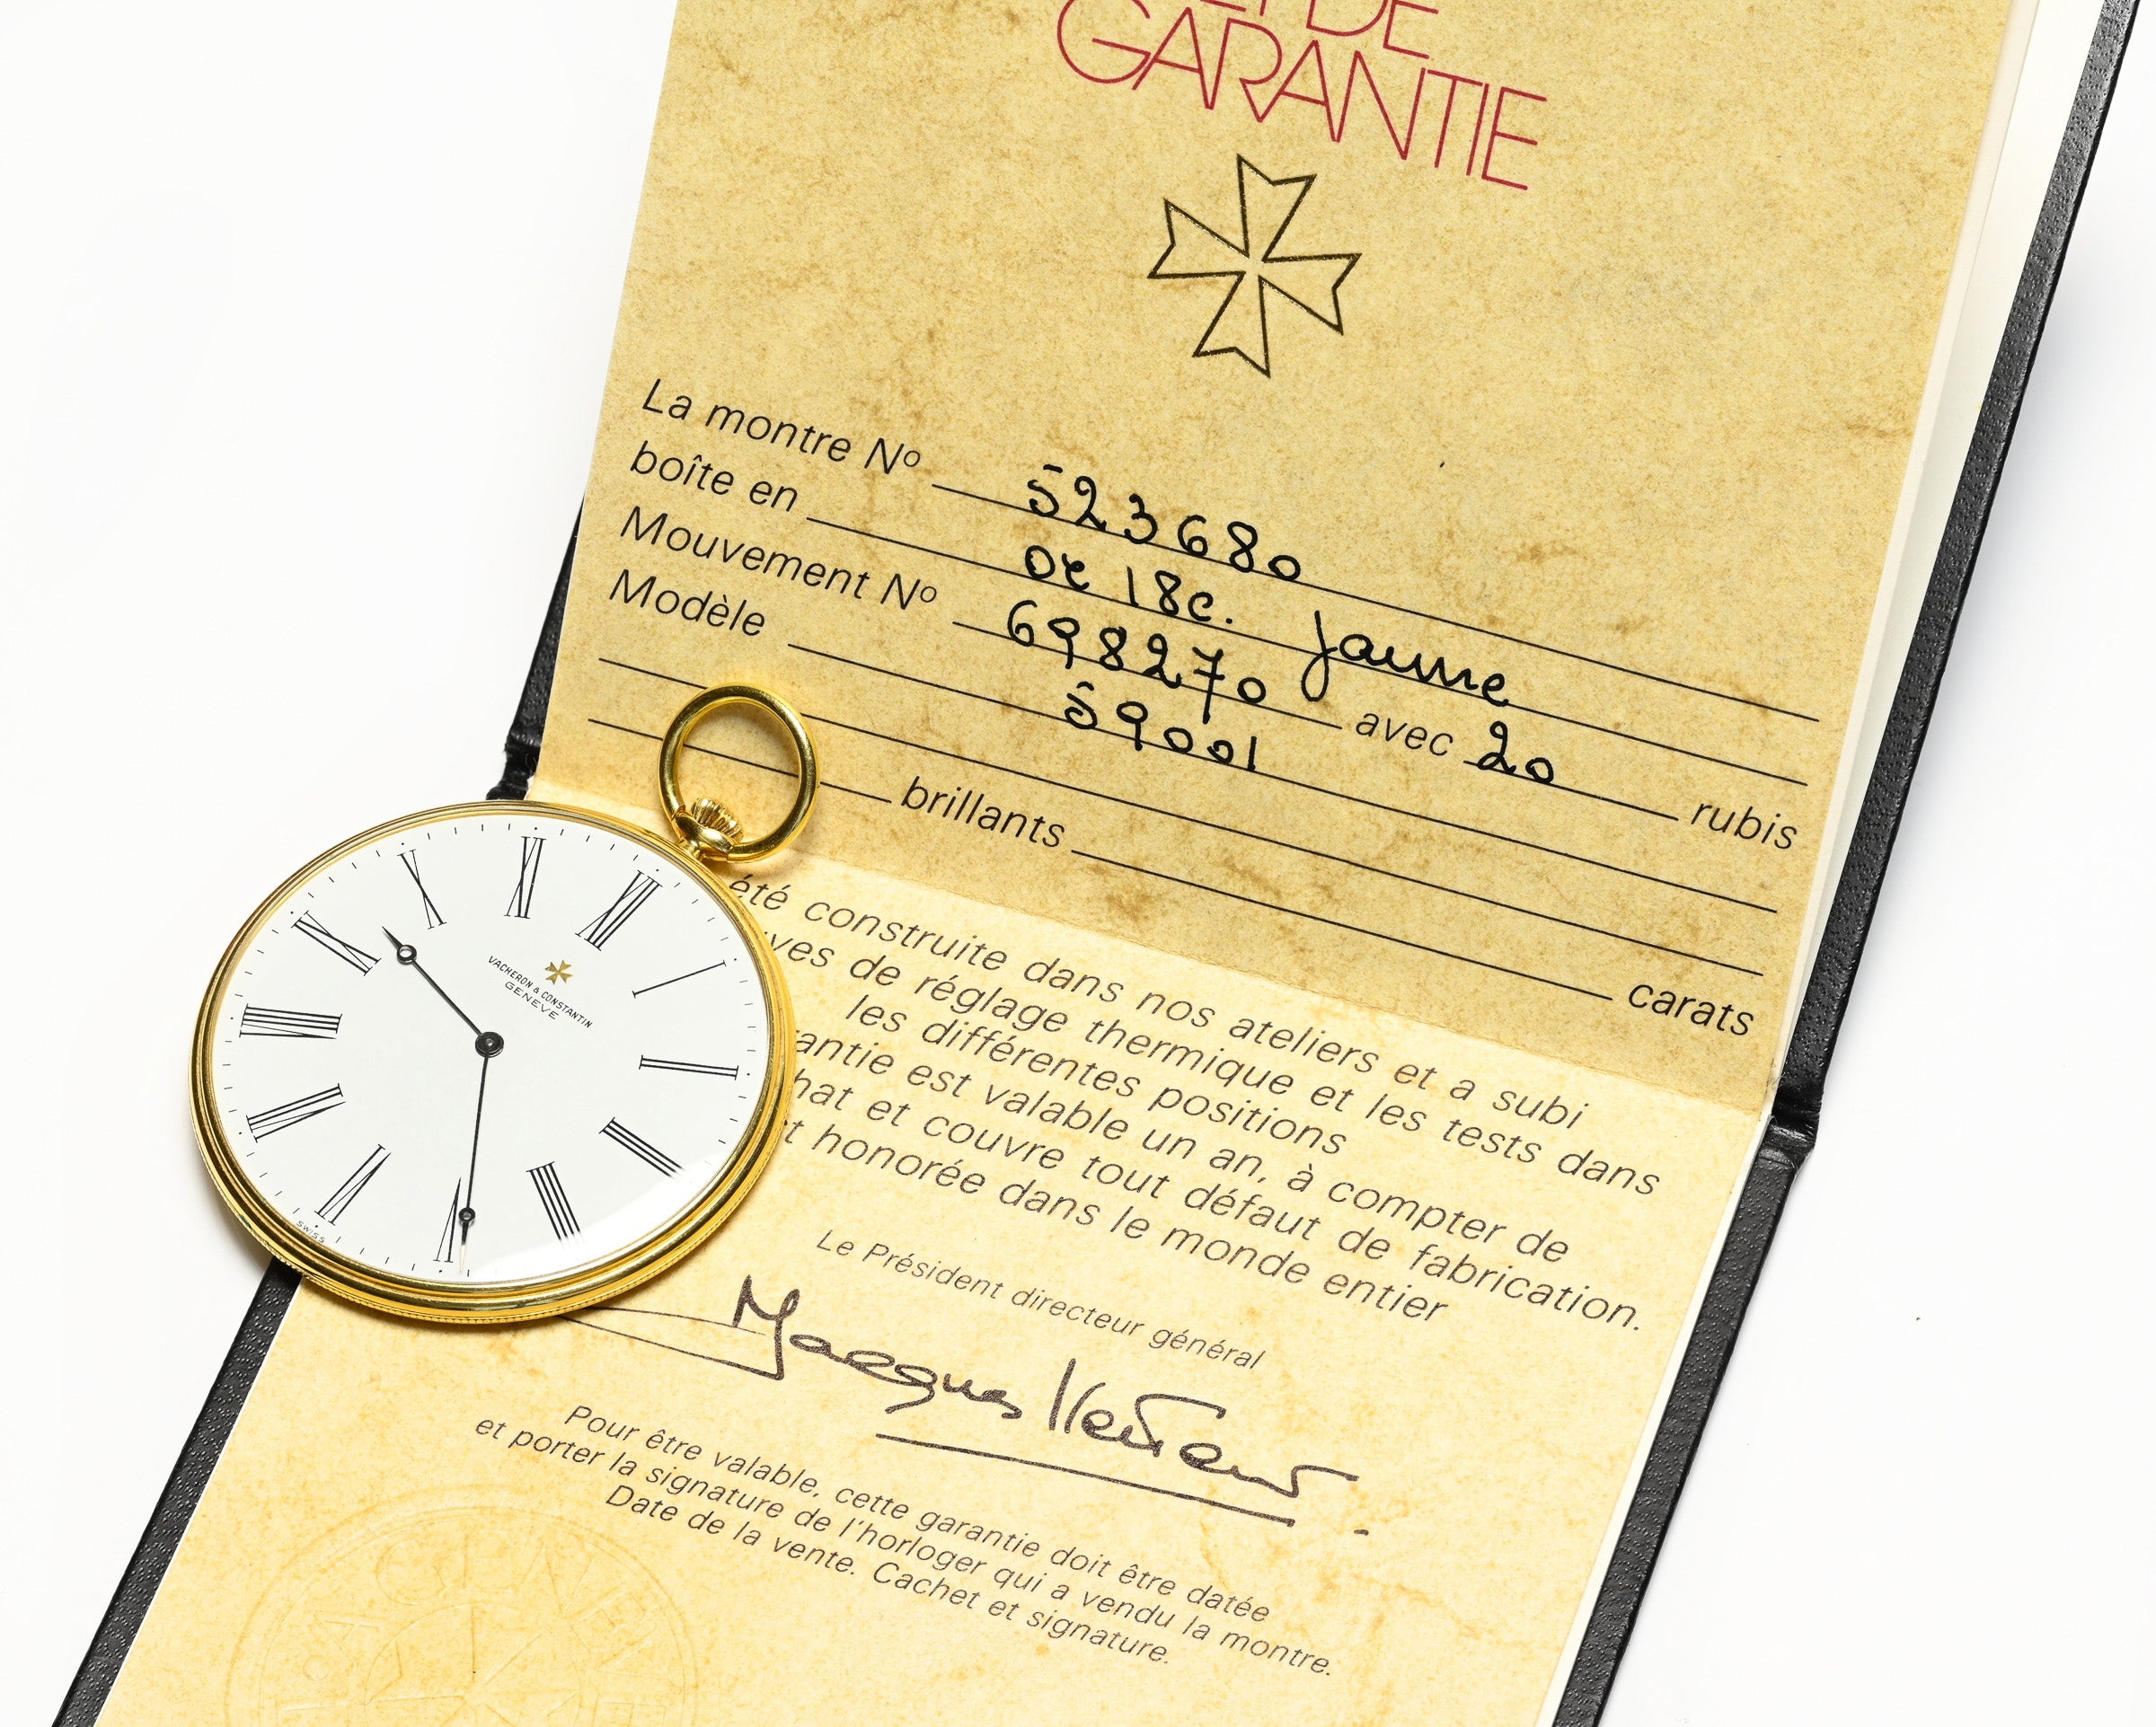 ET DE
GARANTIE
La montre Nº 523680
boîte en or 18c. jaune
Mouvement Nº 698270 avec 20 rubis
Modèle 59001
brillants carats
été construite dans nos ateliers et a subi
ves de réglage thermique et les tests dans
les différentes positions
rantie est valable un an, à compter de
hat et couvre tout défaut de fabrication.
t honorée dans le monde entier
Le Président directeur général
Jacques Ketterer
Pour être valable, cette garantie doit être datée
et porter la signature de l'horloger qui a vendu la montre.
Date de la vente. Cachet et signature.
XII
I
II
III
IIII
V
VI
VII
VIII
IX
X
XI
VACHERON & CONSTANTIN
GENEVE
SWISS